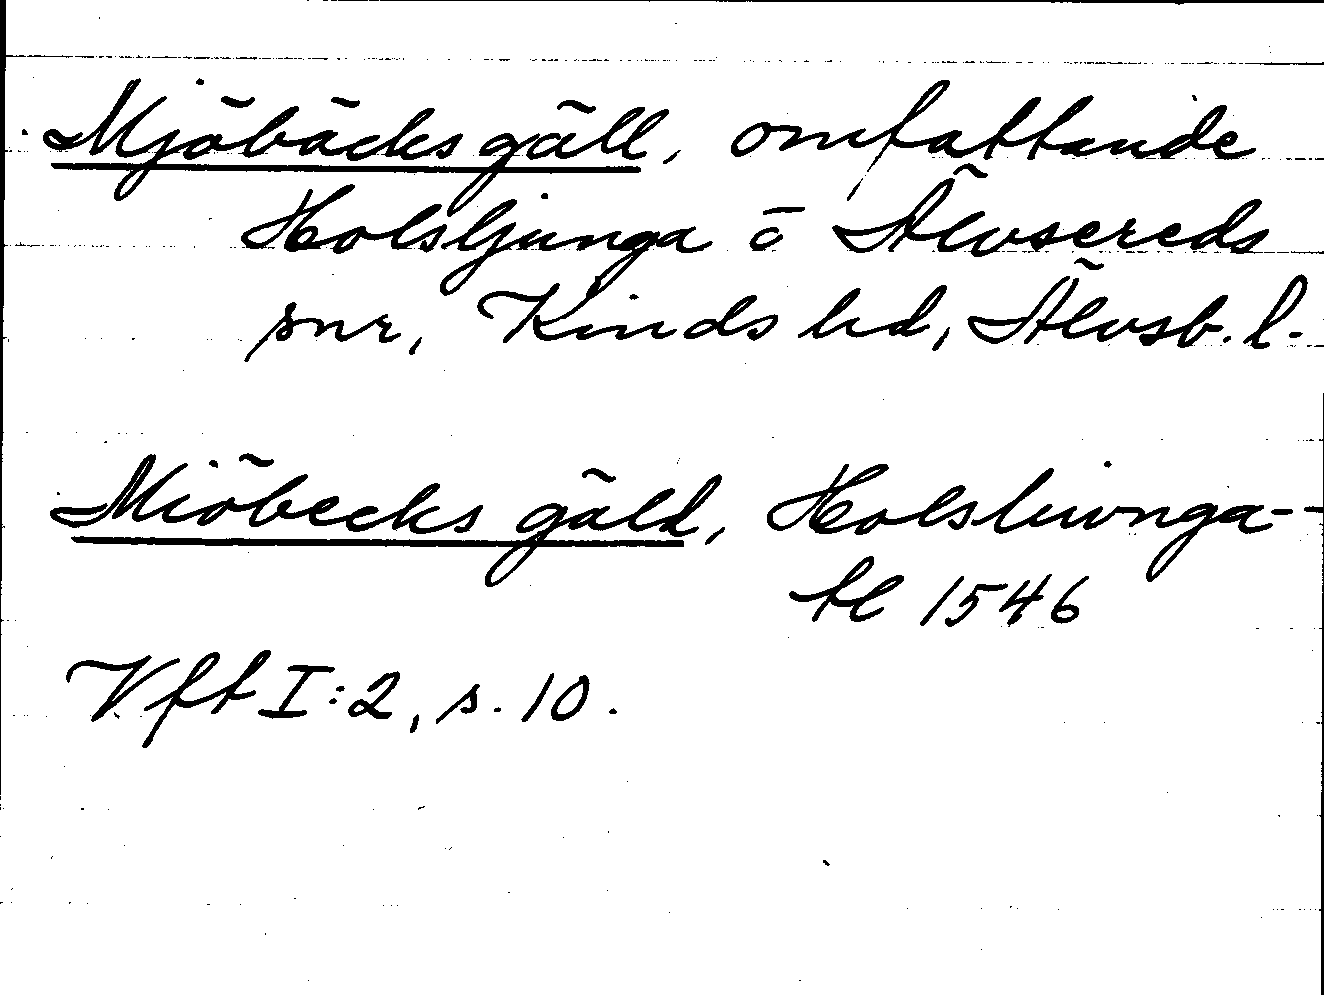 Mjöbäcks gäll, omfattande
Holsljunga o Älvsereds
snr, Kinds hd, Älvsb. l.
Miöbecks gäld, Holsliunga-
tl 1546
Vft I:2, s. 10.